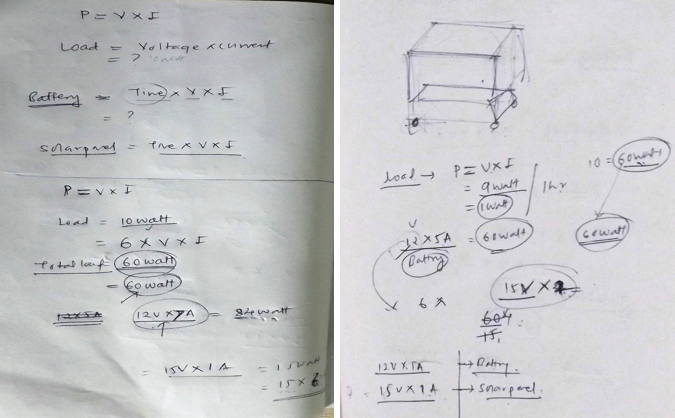 P = V x I
Load = Voltage x current
= ?
Battery = Time x V x I
= ?
Solarpanel = Time x V x I
P = V x I
Load = 10 watt
= 6 x V x I
Total load 60 watt
= 60 watt
12 x 5A 12V x 7A = 84 watt
= 15V x 1A = 15 watt
= 15 x 6
Load → P = V x I
= 9 watt
= 1 watt
1 hr
10 = 60 watt
V
12 x 5A = 60 watt
Battry
60 watt
x 6 x
15V x
60
15
12V x 5A → Battry
= 15V x 1A → Solar panel